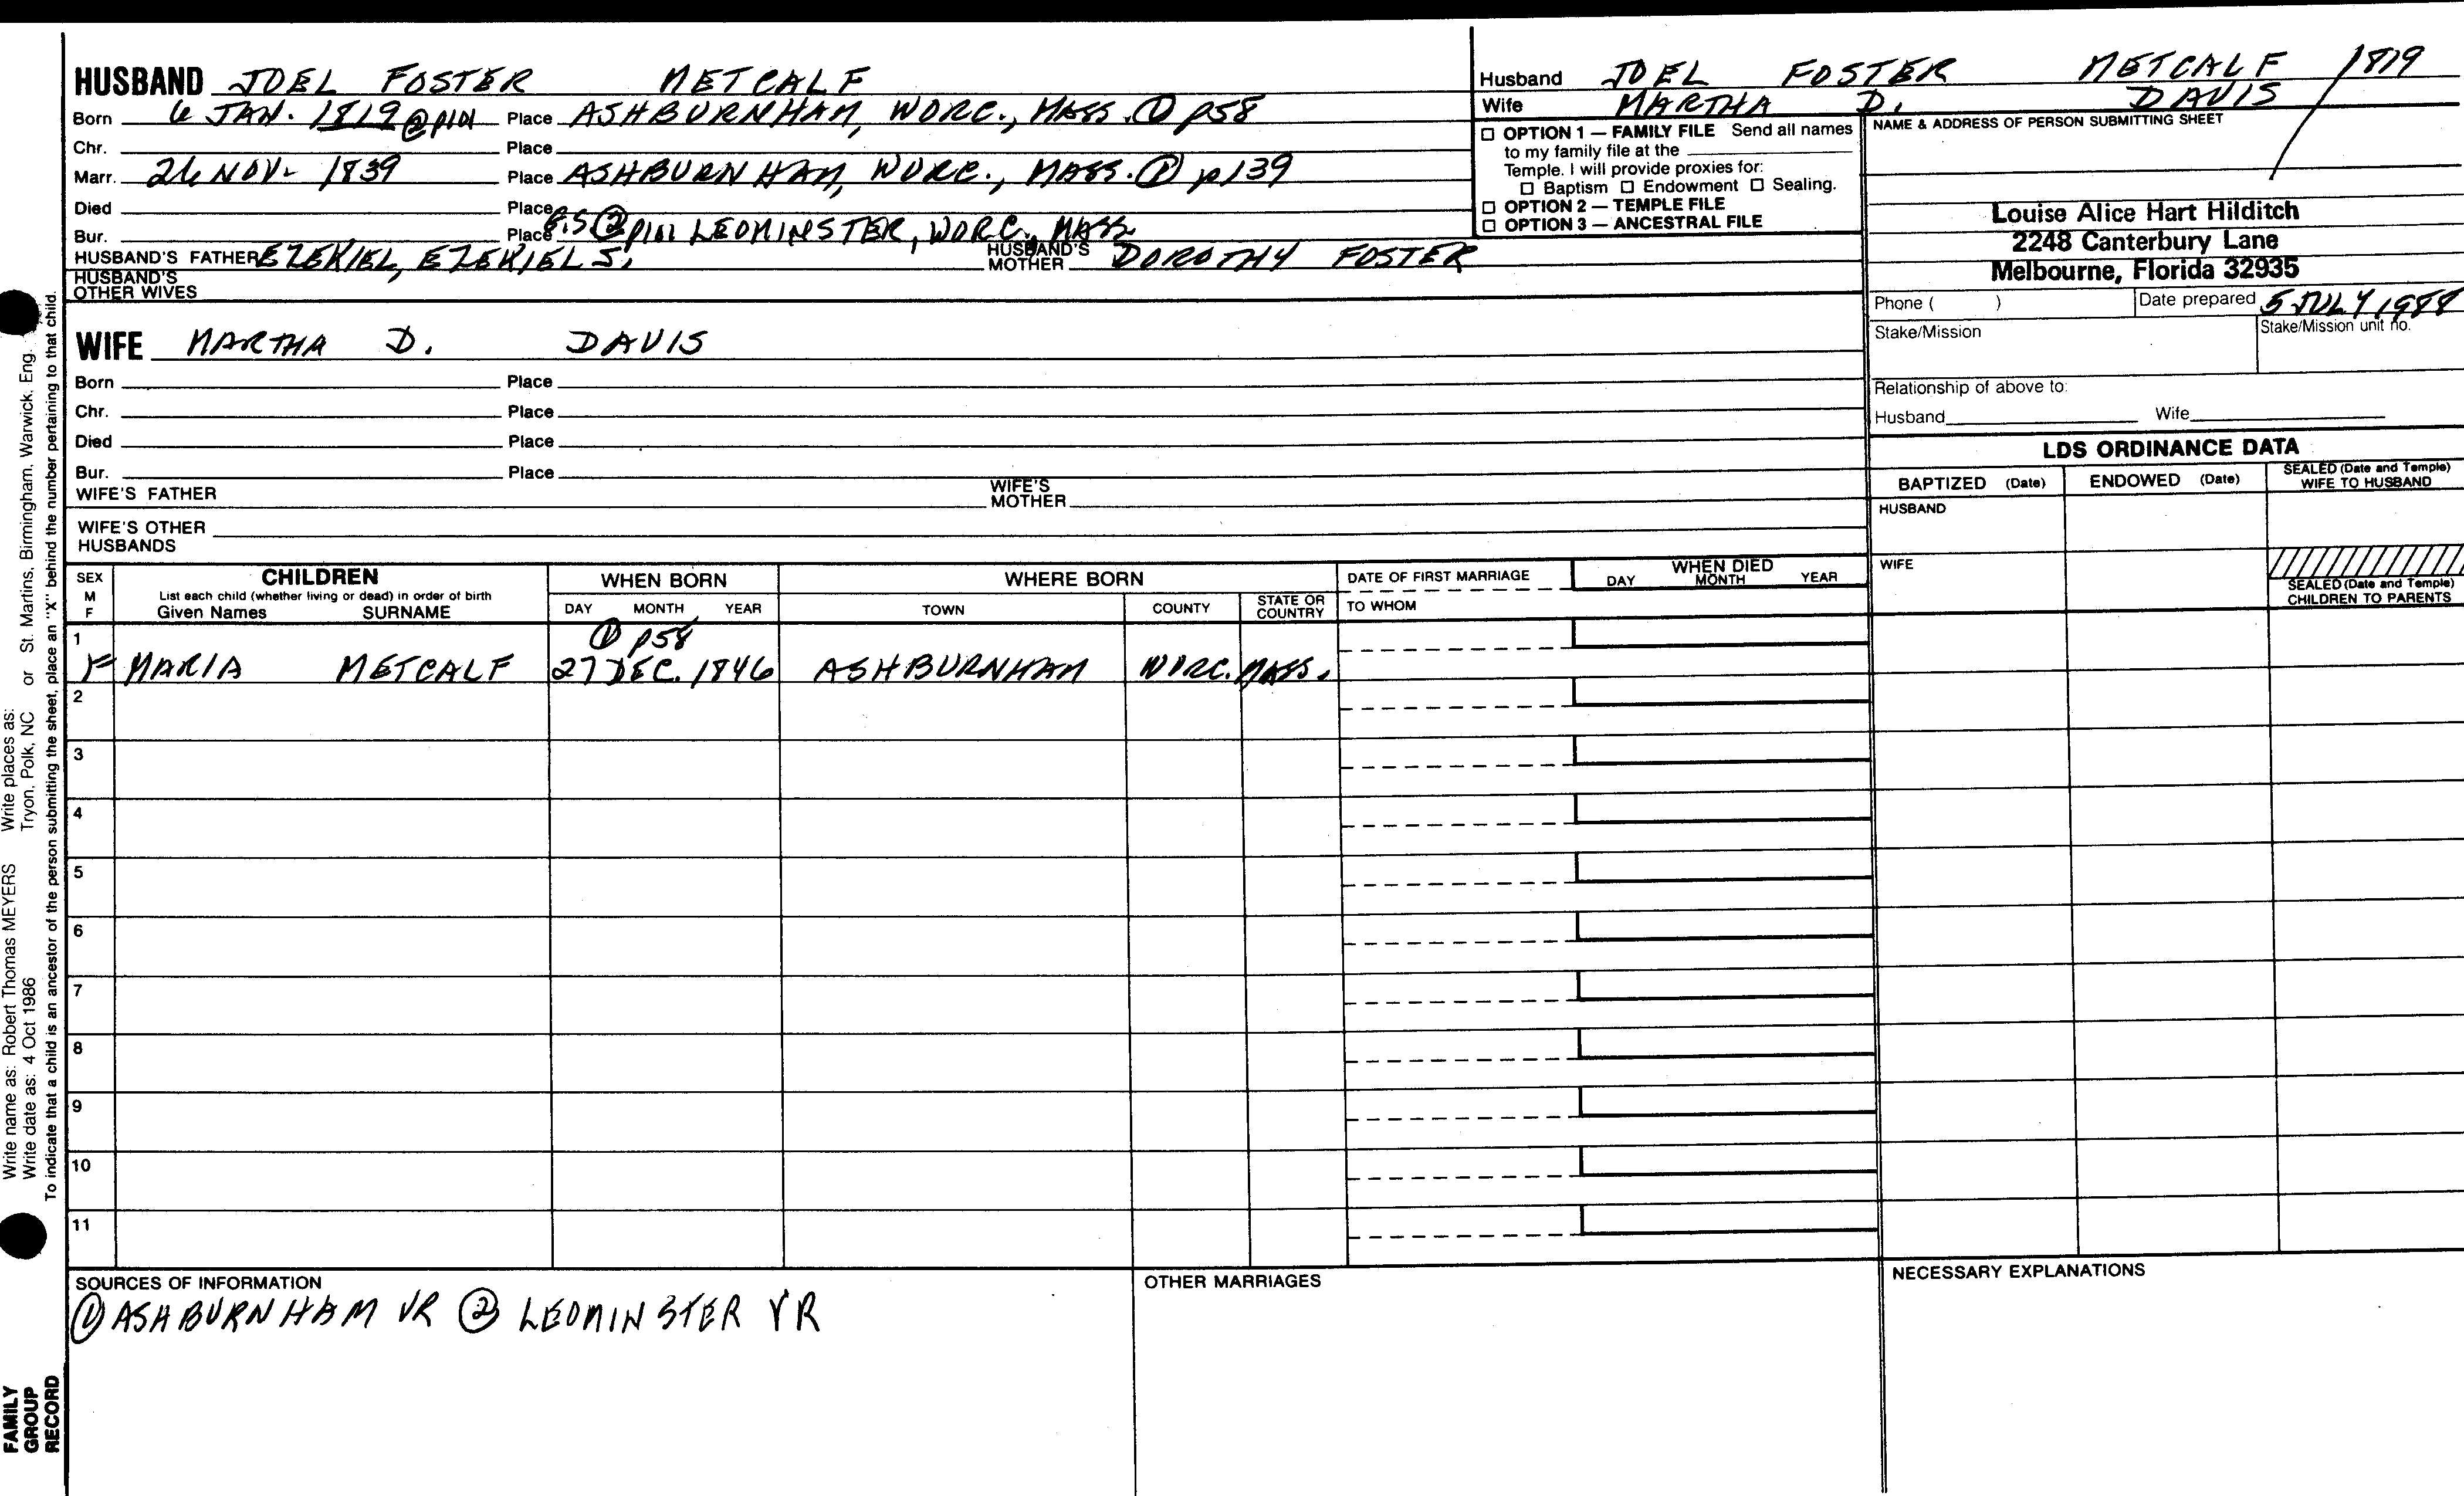 HUSBAND JOEL FOSTER METCALF
Born 6 JAN. 1819 @ p101 Place ASHBURNHAM, WORC., MASS. ① p58
Chr. Place
Marr. 26 NOV. 1839 Place ASHBURNHAM, WORC., MASS. ① p139
Died Place
Bur. Place G.S. ② p101 LEOMINSTER, WORC., MASS
HUSBAND'S FATHER EZEKIEL, EZEKIEL S. HUSBAND'S MOTHER DOROTHY FOSTER
HUSBAND'S OTHER WIVES
WIFE MARTHA D. DAVIS
Born Place
Chr. Place
Died Place
Bur. Place
WIFE'S FATHER WIFE'S MOTHER
WIFE'S OTHER HUSBANDS
Husband JOEL FOSTER METCALF 1819
Wife MARTHA D. DAVIS
☐ OPTION 1 — FAMILY FILE Send all names
to my family file at the
Temple. I will provide proxies for:
☐ Baptism ☐ Endowment ☐ Sealing.
☐ OPTION 2 — TEMPLE FILE
☐ OPTION 3 — ANCESTRAL FILE
NAME & ADDRESS OF PERSON SUBMITTING SHEET
Louise Alice Hart Hilditch
2248 Canterbury Lane
Melbourne, Florida 32935
Phone ( ) Date prepared 5 JULY 1988
Stake/Mission Stake/Mission unit no.
Relationship of above to:
Husband Wife
LDS ORDINANCE DATA
BAPTIZED (Date) ENDOWED (Date) SEALED (Date and Temple) WIFE TO HUSBAND
HUSBAND
WIFE
SEALED (Date and Temple) CHILDREN TO PARENTS
SEX M F CHILDREN WHEN BORN WHERE BORN DATE OF FIRST MARRIAGE WHEN DIED
List each child (whether living or dead) in order of birth
Given Names SURNAME DAY MONTH YEAR TOWN COUNTY STATE OR COUNTRY TO WHOM DAY MONTH YEAR
1 ① p58
F MARIA METCALF 27 DEC. 1846 ASHBURNHAM WORC. MASS.
2
3
4
5
6
7
8
9
10
11
SOURCES OF INFORMATION
① ASHBURNHAM VR ② LEOMINSTER VR
OTHER MARRIAGES
NECESSARY EXPLANATIONS
Write name as: Robert Thomas MEYERS Write places as:
Write date as: 4 Oct 1986 Tryon, Polk, NC or St. Martins, Birmingham, Warwick, Eng.
To indicate that a child is an ancestor of the person submitting the sheet, place an "X" behind the number pertaining to that child.
FAMILY
GROUP
RECORD